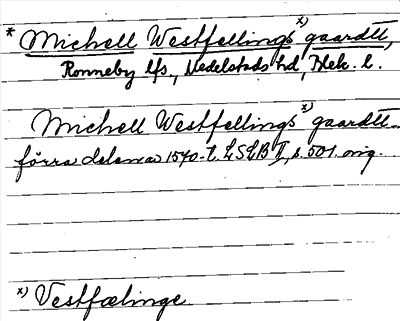 * Michell Westfellings x) gaardtt,
Ronneby lfs., Medelstads hd, Blek. l.
Michell Westfellings x) gaardtt
förra delen av 1540-t. LSLB II, s. 501. orig.
x) Vestfælinge